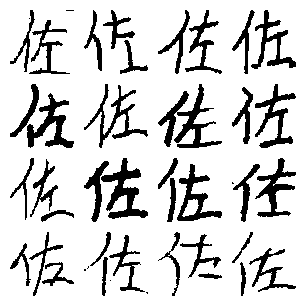 佐佐佐佐
佐佐佐佐
佐佐佐佐
佐佐佐佐